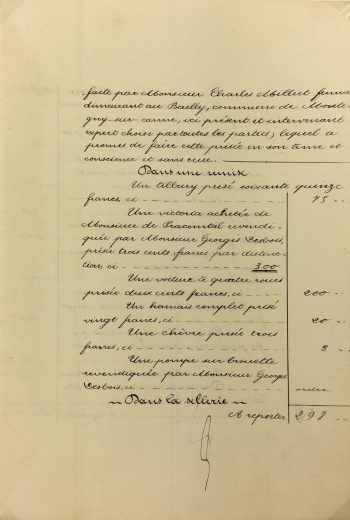 faite par Monsieur Charles Milliet fermier
demeurant au Bailly, commune de Monti-
gny-sur-canne, ici présent et intervenant
expert choisi par toutes les parties; lequel a
promis de faire cette prisée en son âme et
conscience et sans crue.
Dans une remise
Un tilbury prisé soixante quinze
francs, ci 75 "
Une victoria achetée de
Monsieur de Pracomtal revendi-
quée par Monsieur Georges Lesbois,
prisée trois cents francs par distinc-
tion, ci 300
Une voiture à quatre roues
prisée deux cents francs, ci 200 "
Un harnais complet prisé
vingt francs, ci 20 "
Une chèvre prisée trois
francs, ci 3 "
Une pompe sur brouette
revendiquée par Monsieur Georges
Lesbois, ci
Dans la sellerie
A reporter 298 "